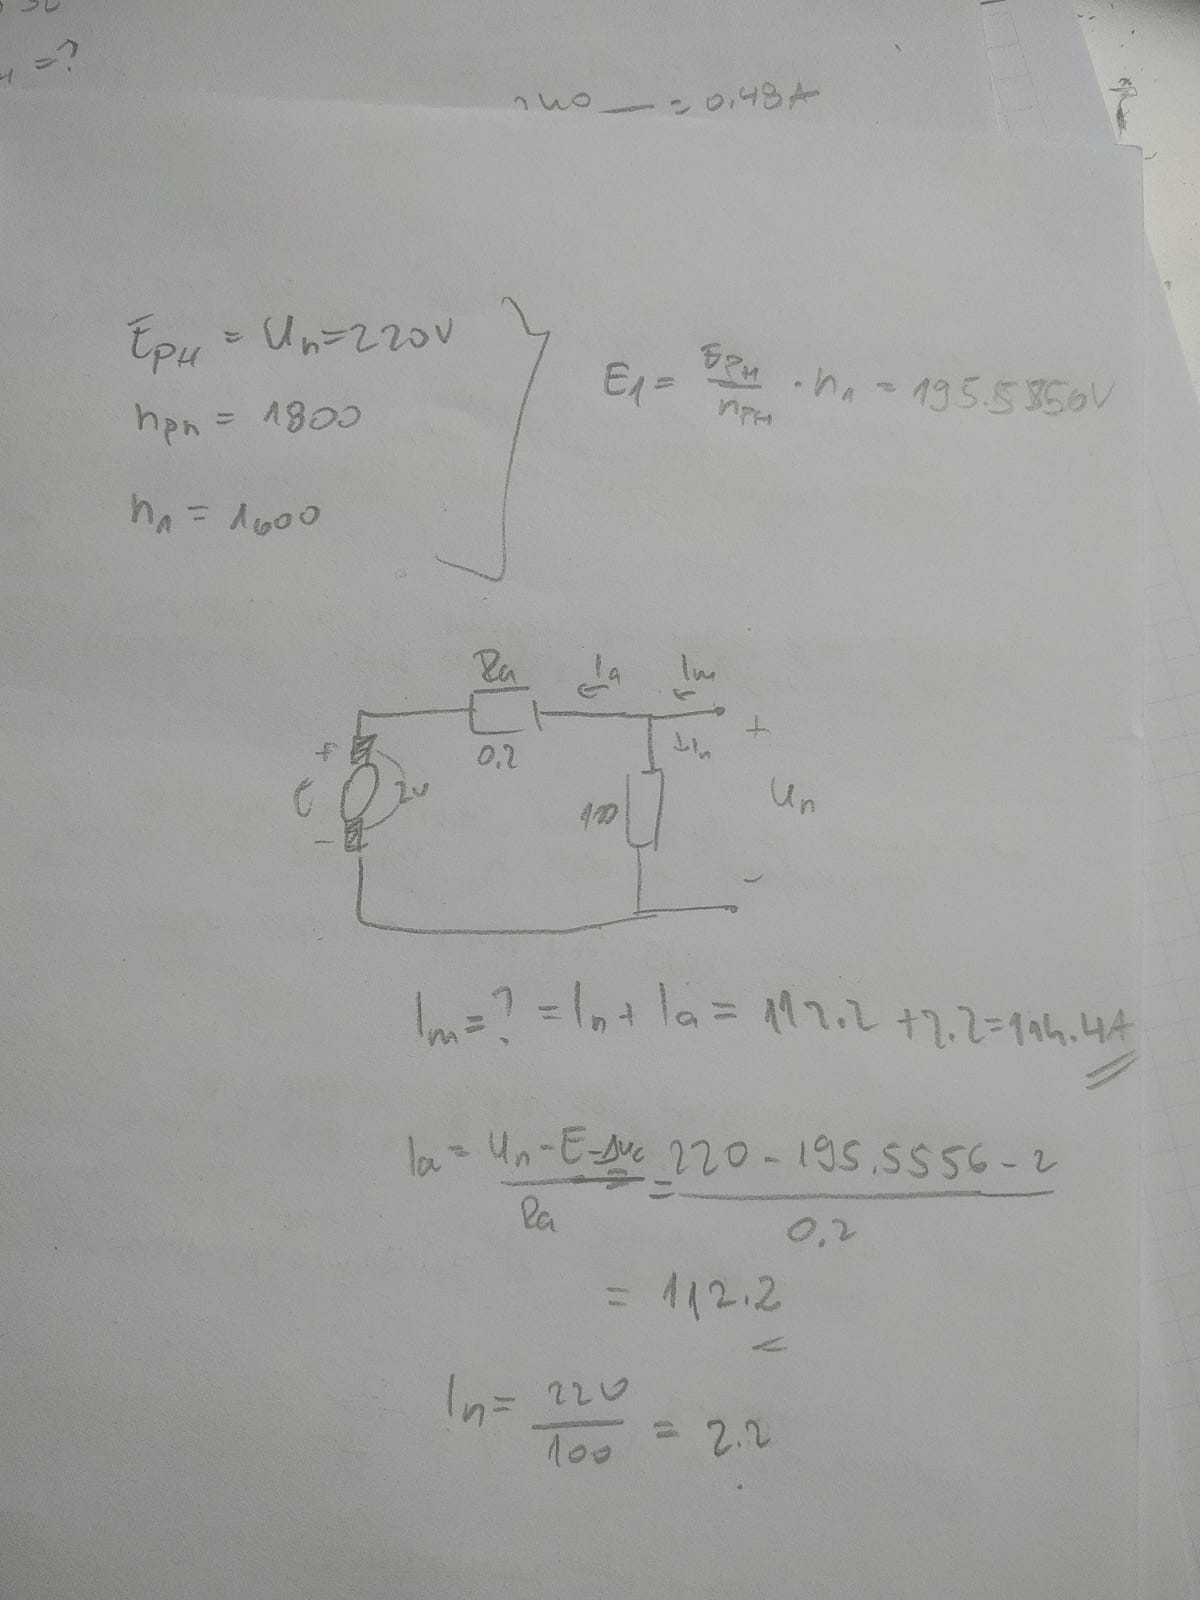 =?
= 0.48A
EPH = Un = 220V
nPn = 1800
n1 = 1600
E1 = EPH / nPH · n1 = 195.5556V
Ra
Ia
Im
0.2
In
+
+
2V
E
100
Un
-
-
Im = ? = In + Ia = 112.2 + 2.2 = 114.4A
Ia = Un - E - Δuc / Ra = 220 - 195.5556 - 2 / 0.2
= 112.2
In = 220 / 100 = 2.2